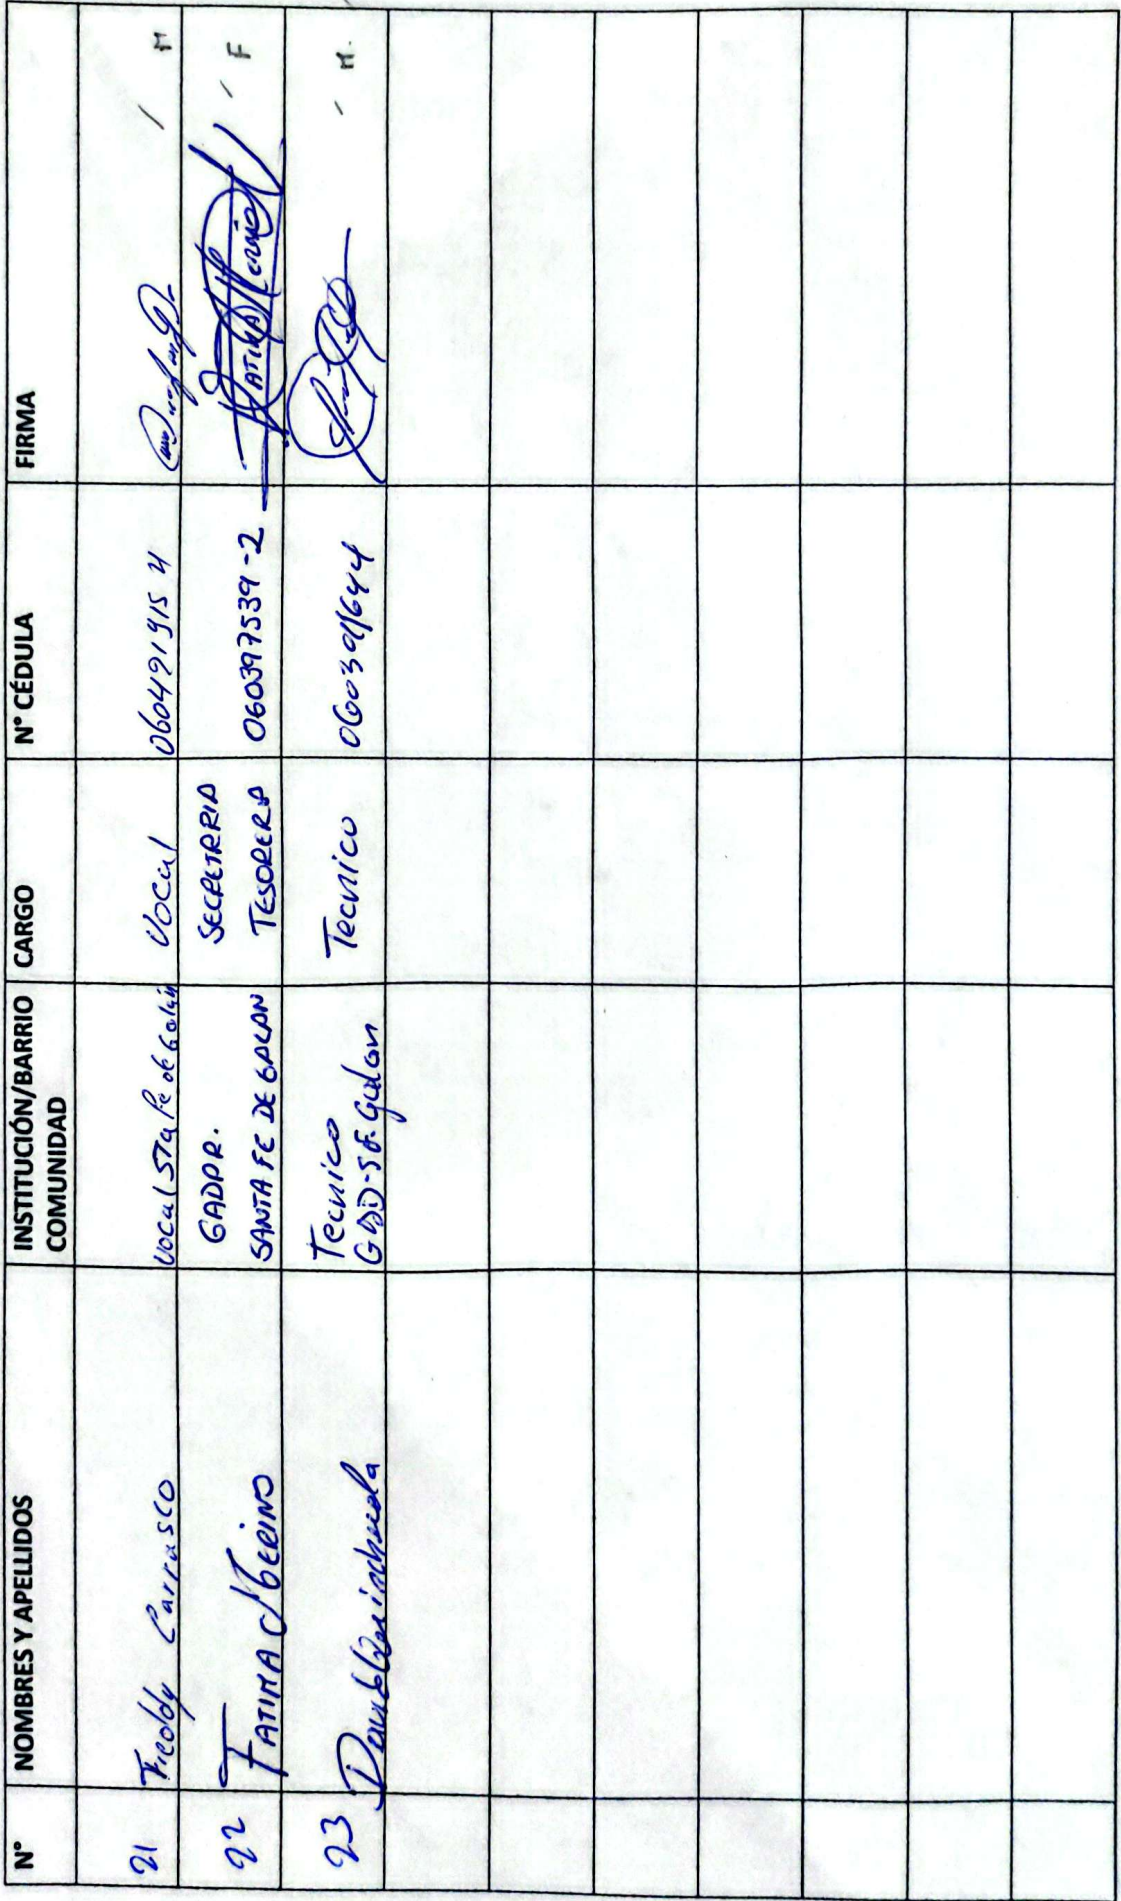 N° NOMBRES Y APELLIDOS INSTITUCIÓN/BARRIO COMUNIDAD CARGO N° CÉDULA FIRMA
21 Freddy Carrasco Vocal Sta Fe de Galán Vocal 060491915 4 / M
22 FATIMA MERINO GADPR. SANTA FE DE GALAN SECRETARIA TESORERA 060397539-2 FATIMA Merino / F
23 Tecnico Tecnico / M.